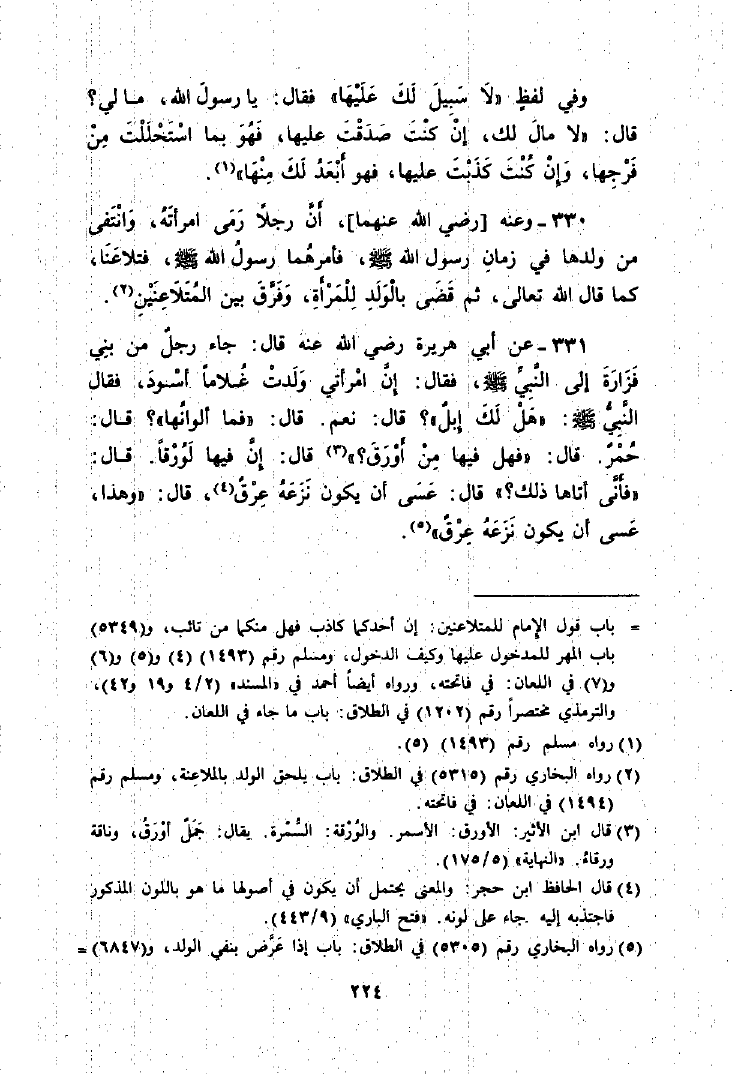 وفي لفظٍ «لَا سَبِيلَ لَكَ عَلَيْهَا» فقال: يا رسولَ الله، مـا لي؟
قال: «لا مالَ لك، إنْ كنْتَ صَدَقْتَ عليها، فَهُوَ بما اسْتَحْلَلْتَ مِنْ
فَرْجِها، وَإِنْ كُنْتَ كَذَبْتَ عليها، فهو أَبْعَدُ لَكَ مِنْهَا»(١).
٣٣٠ ـ وعنه [رضي الله عنهما]، أَنَّ رجلًا رَمَى امرأتَهُ، وَانْتَفى
من ولدها في زمانِ رسول الله ﷺ، فأمرهُما رسولُ الله ﷺ، فتلاعَنَا،
كما قال الله تعالى، ثم قَضَى بالْوَلَدِ لِلْمَرْأَةِ، وَفَرَّقَ بين المُتَلَاعِنَيْنِ(٢).
٣٣١ ـ عن أبي هريرة رضي الله عنه قال: جاء رجلٌ من بنِي
فَزَارَةَ إلى النَّبِيِّ ﷺ، فقال: إنَّ امْرأتي وَلَدتْ غُـلاماً أسْودَ، فقال
النَّبِيُّ ﷺ: «هَلْ لَكَ إبلٌ»؟ قال: نعم. قال: «فما ألوانُها»؟ قـال:
حُمْرٌ. قال: «فهل فيها مِنْ أَوْرَقَ؟»(٣) قال: إنَّ فيها لَوُرْقاً. قـال:
«فأَنَّى أتاها ذلك؟» قال: عَسَى أن يكون نَزَعَهُ عِرْقٌ(٤)، قال: «وهذا،
عَسى أن يكون نَزَعَهُ عِرْقٌ»(٥).
= باب قول الإمام للمتلاعنين: إن أحدكما كاذب فهل منكما من تائب، و(٥٣٤٩)
باب المهر للمدخول عليها وكيف الدخول، ومسلم رقم (١٤٩٣) (٤) و(٥) و(٦)
و(٧) في اللعان: في فاتحته، ورواه أيضاً أحمد في «المسند» (٤/٢ و١٩ و٤٢)،
والترمذي مختصراً رقم (١٢٠٢) في الطلاق: باب ما جاء في اللعان.
(١) رواه مسلم رقم (١٤٩٣) (٥).
(٢) رواه البخاري رقم (٥٣١٥) في الطلاق: باب يلحق الولد بالملاعنة، ومسلم رقم
(١٤٩٤) في اللعان: في فاتحته.
(٣) قال ابن الأثير: الأورق: الأسمر. والوُرْقة: السُّمْرة. يقال: جَمَلٌ أوْرَقُ، وناقة
ورقاءُ. «النهاية» (١٧٥/٥).
(٤) قال الحافظ ابن حجر: والمعنى يحتمل أن يكون في أصولها ما هو باللون المذكور
فاجتذبه إليه جاء على لونه. «فتح الباري» (٤٤٣/٩).
(٥) رواه البخاري رقم (٥٣٠٥) في الطلاق: باب إذا عَرَّض بنفي الولد، و(٦٨٤٧) =
٢٢٤